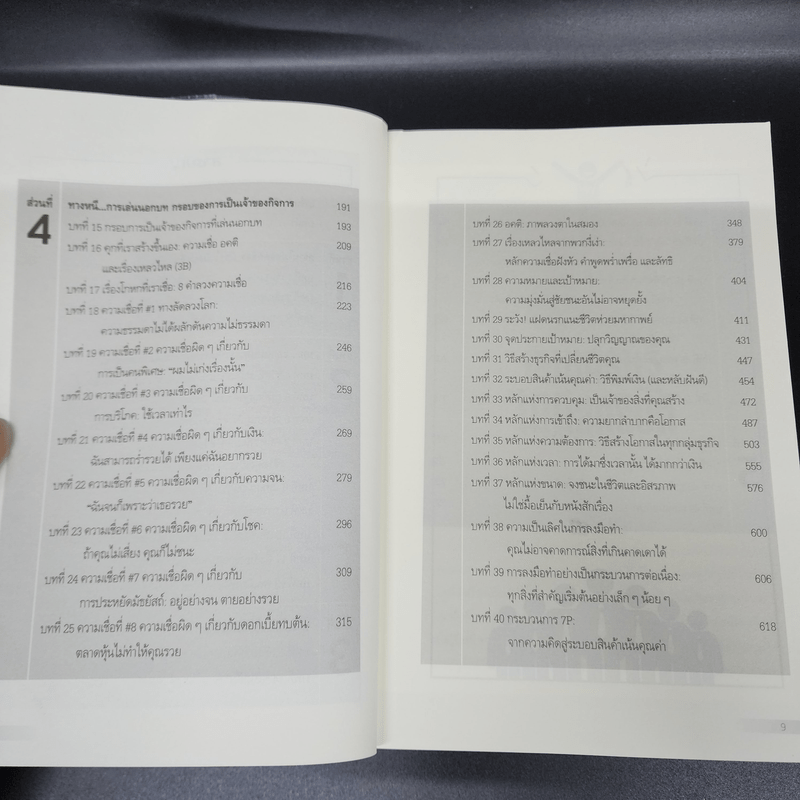 ส่วนที่ ทางหนี...การเล่นนอกบท กรอบของการเป็นเจ้าของกิจการ 191
4
บทที่ 15 กรอบการเป็นเจ้าของกิจการที่เล่นนอกบท 193
บทที่ 16 คุกที่เราสร้างขึ้นเอง: ความเชื่อ อคติ 209
และเรื่องเหลวไหล (3B)
บทที่ 17 เรื่องโกหกที่เราเชื่อ: 8 คำลวงความเชื่อ 216
บทที่ 18 ความเชื่อที่ #1 ทางลัดลวงโลก: 223
ความธรรมดาไม่ได้ผลักดันความไม่ธรรมดา
บทที่ 19 ความเชื่อที่ #2 ความเชื่อผิด ๆ เกี่ยวกับ 246
การเป็นคนพิเศษ: “ผมไม่เก่งเรื่องนั้น”
บทที่ 20 ความเชื่อที่ #3 ความเชื่อผิด ๆ เกี่ยวกับ 259
การบริโภค: ใช้เวลาเท่าไร
บทที่ 21 ความเชื่อที่ #4 ความเชื่อผิด ๆ เกี่ยวกับเงิน: 269
ฉันสามารถร่ำรวยได้ เพียงแค่ฉันอยากรวย
บทที่ 22 ความเชื่อที่ #5 ความเชื่อผิด ๆ เกี่ยวกับความจน: 279
“ฉันจนก็เพราะว่าเธอรวย”
บทที่ 23 ความเชื่อที่ #6 ความเชื่อผิด ๆ เกี่ยวกับโชค: 296
ถ้าคุณไม่เสี่ยง คุณก็ไม่ชนะ
บทที่ 24 ความเชื่อที่ #7 ความเชื่อผิด ๆ เกี่ยวกับ 309
การประหยัดมัธยัสถ์: อยู่อย่างจน ตายอย่างรวย
บทที่ 25 ความเชื่อที่ #8 ความเชื่อผิด ๆ เกี่ยวกับดอกเบี้ยทบต้น: 315
ตลาดหุ้นไม่ทำให้คุณรวย
บทที่ 26 อคติ: ภาพลวงตาในสมอง 348
บทที่ 27 เรื่องเหลวไหลจากพวกงี่เง่า: 379
หลักความเชื่อฝังหัว คำพูดพร่ำเพรื่อ และลัทธิ
บทที่ 28 ความหมายและเป้าหมาย: 404
ความมุ่งมั่นสู่ชัยชนะอันไม่อาจหยุดยั้ง
บทที่ 29 ระวัง! แฝดนรกแนะชีวิตห่วยมหากาพย์ 411
บทที่ 30 จุดประกายเป้าหมาย: ปลุกวิญญาณของคุณ 431
บทที่ 31 วิธีสร้างธุรกิจที่เปลี่ยนชีวิตคุณ 447
บทที่ 32 ระบอบสินค้าเน้นคุณค่า: วิธีพิมพ์เงิน (และหลับฝันดี) 454
บทที่ 33 หลักแห่งการควบคุม: เป็นเจ้าของสิ่งที่คุณสร้าง 472
บทที่ 34 หลักแห่งการเข้าถึง: ความยากลำบากคือโอกาส 487
บทที่ 35 หลักแห่งความต้องการ: วิธีสร้างโอกาสในทุกกลุ่มธุรกิจ 503
บทที่ 36 หลักแห่งเวลา: การได้มาซึ่งเวลานั้น ได้มากกว่าเงิน 555
บทที่ 37 หลักแห่งขนาด: จงชนะในชีวิตและอิสรภาพ 576
ไม่ใช่มื้อเย็นกับหนังสักเรื่อง
บทที่ 38 ความเป็นเลิศในการลงมือทำ: 600
คุณไม่อาจคาดการณ์สิ่งที่เกินคาดเดาได้
บทที่ 39 การลงมือทำอย่างเป็นกระบวนการต่อเนื่อง: 606
ทุกสิ่งที่สำคัญเริ่มต้นอย่างเล็ก ๆ น้อย ๆ
บทที่ 40 กระบวนการ 7P: 618
จากความคิดสู่ระบอบสินค้าเน้นคุณค่า
9